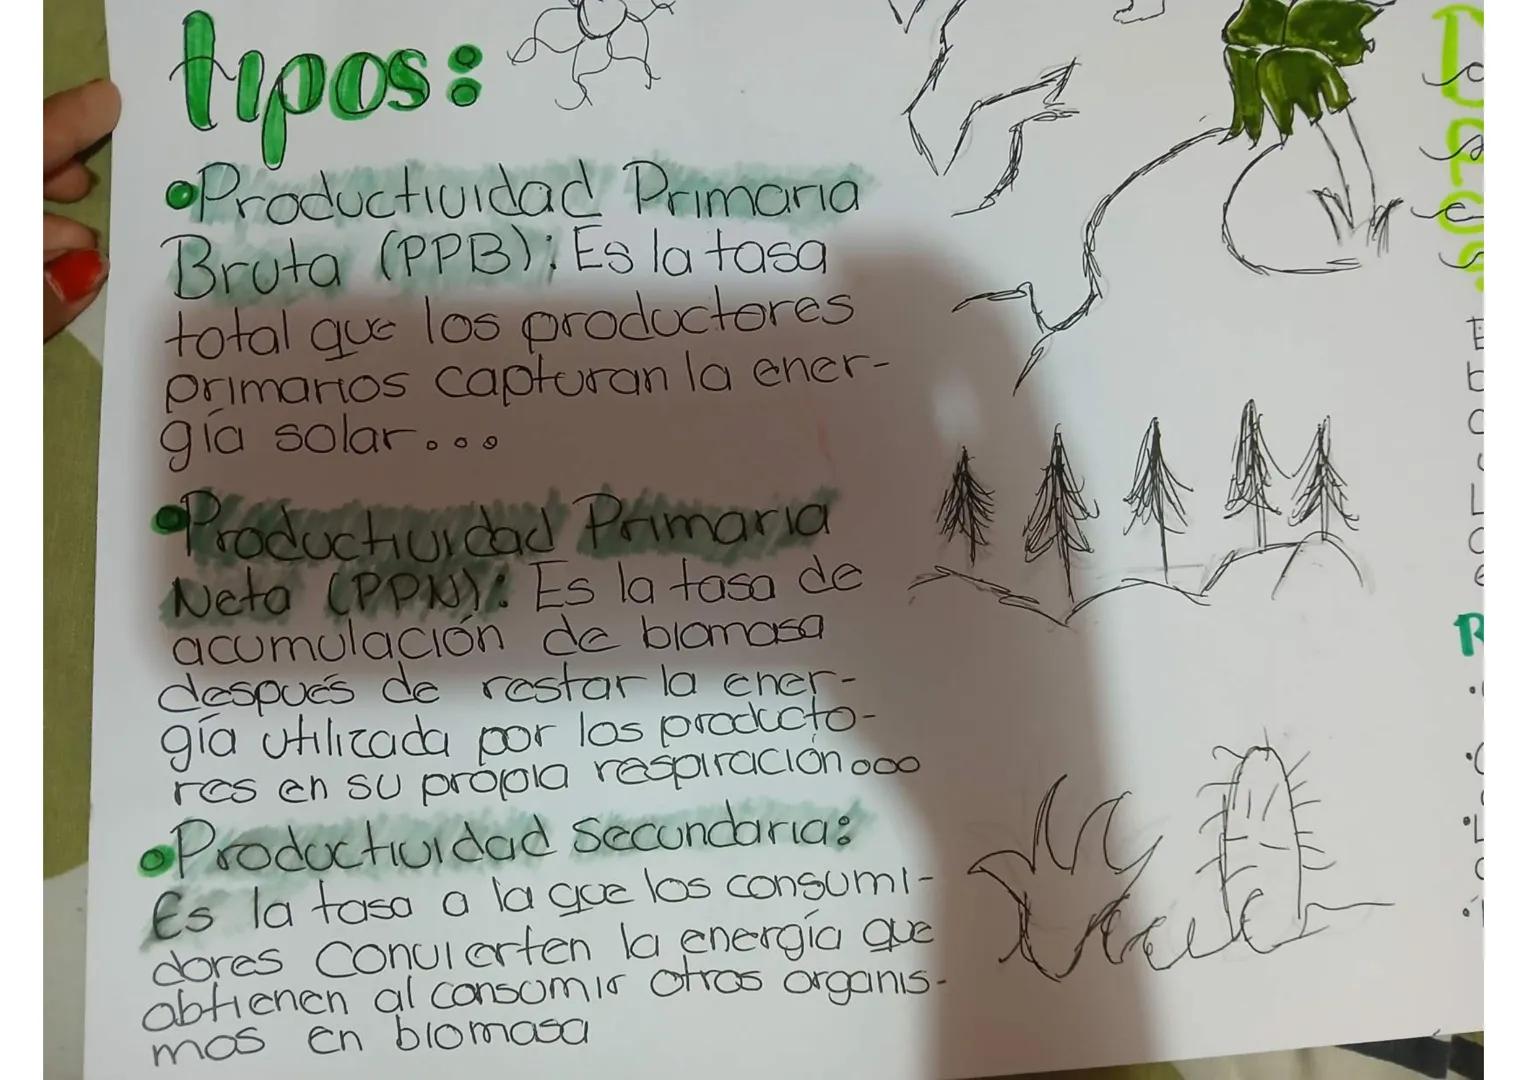 tipos:
•Productividad Primaria
Bruta (PPB): Es la tasa
total que los productores
primarios capturan la ener-
gía solar...
•Productividad Primaria
Neta (PPN): Es la tasa de
acumulación de biomasa
después de restar la ener-
gía utilizada por los producto-
res en su propia respiración...
•Productividad Secundaria:
Es la tasa a la que los consumi-
dores convierten la energía que
obtienen al consumir otros organis-
mos en biomasa